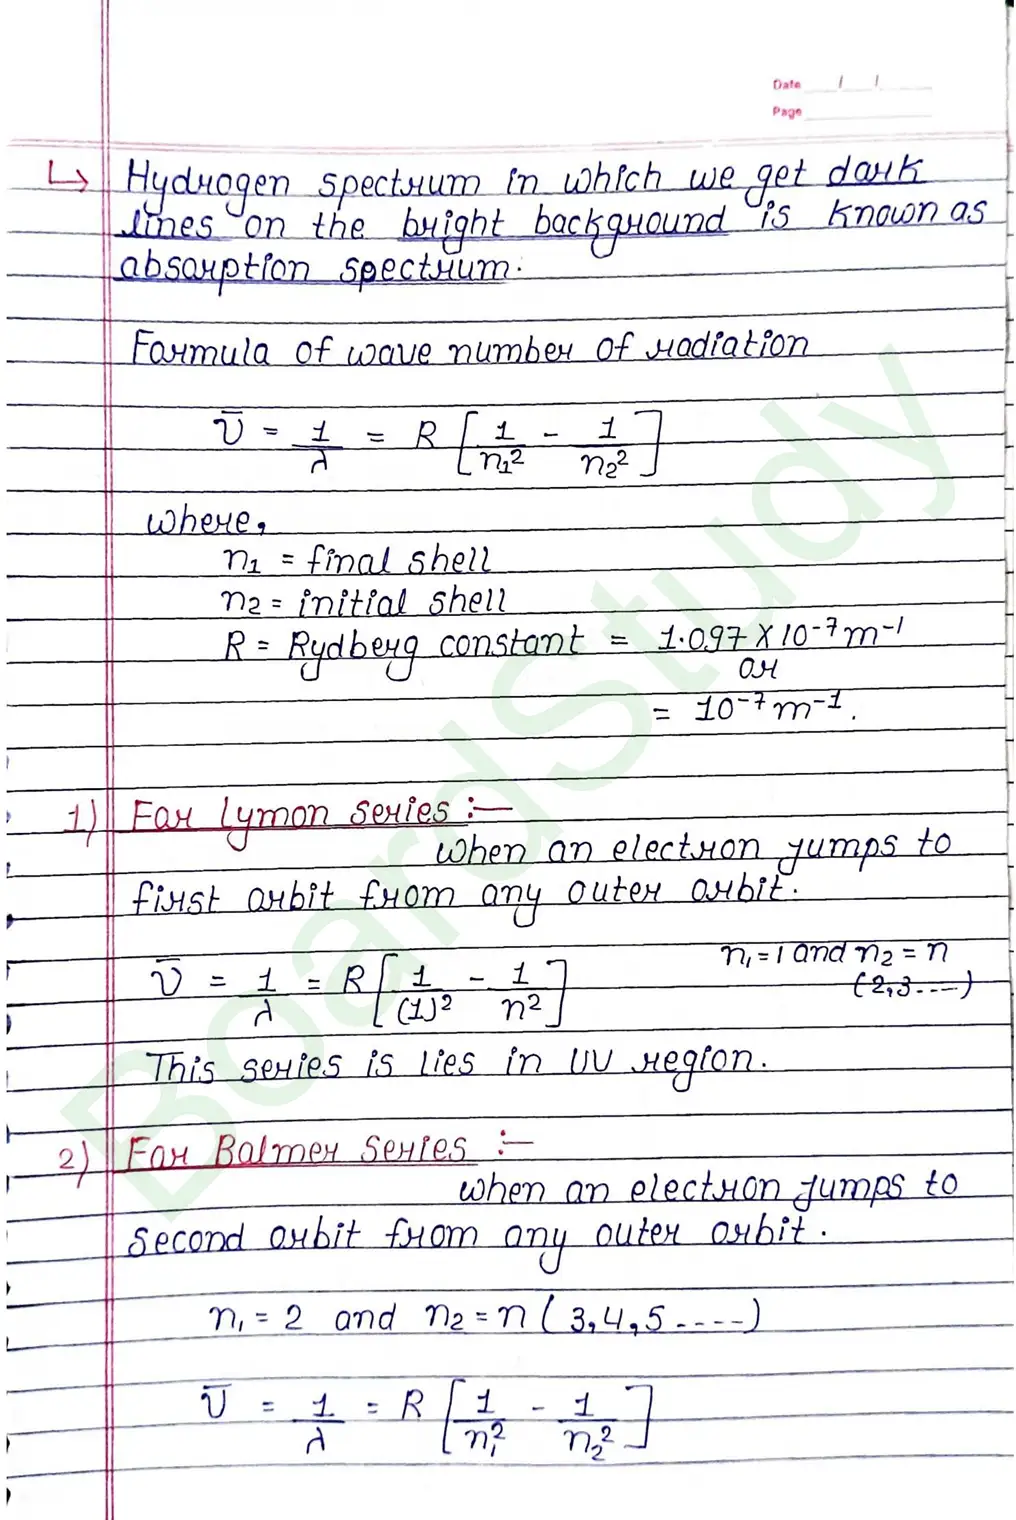 Date / /
Page
↳ Hydrogen spectrum in which we get dark
lines on the bright background is known as
absorption spectrum.
Formula of wave number of radiation
ν̅ = 1/λ = R [1/n₁² - 1/n₂²]
where,
n₁ = final shell
n₂ = initial shell
R = Rydberg constant = 1.097 X 10⁻⁷ m⁻¹
or
= 10⁻⁷ m⁻¹.
1) For Lymon series :—
when an electron jumps to
first orbit from any outer orbit.
n₁ = 1 and n₂ = n
(2,3....)
ν̅ = 1/λ = R [1/(1)² - 1/n²]
This series is lies in UV region.
2) For Balmer Series :—
when an electron jumps to
second orbit from any outer orbit.
n₁ = 2 and n₂ = n (3,4,5....)
ν̅ = 1/λ = R [1/n₁² - 1/n₂²]
BoardStudy